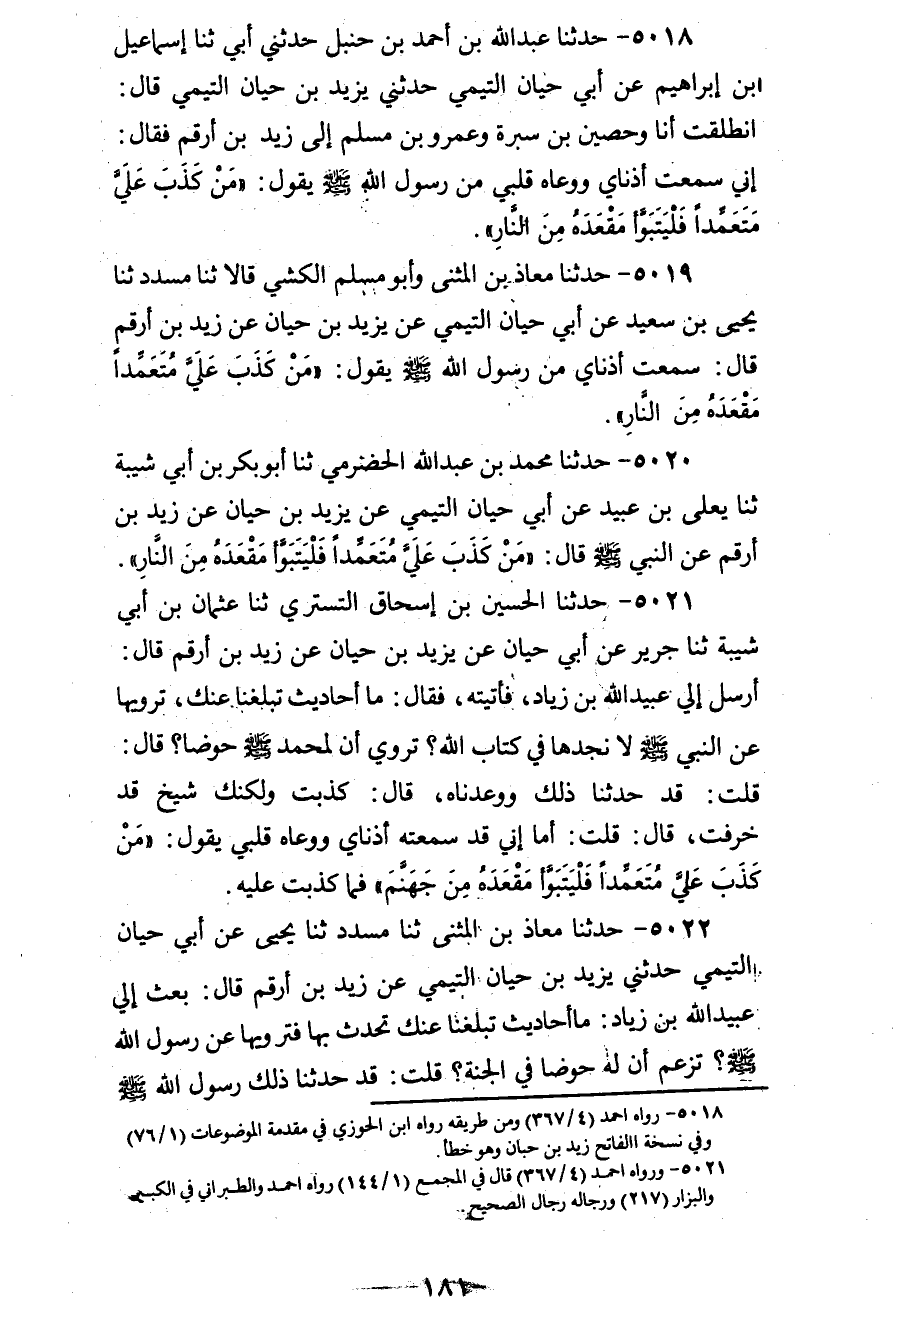 ٥٠١٨- حدثنا عبدالله بن أحمد بن حنبل حدثني أبي ثنا إسماعيل
ابن إبراهيم عن أبي حيان التيمي حدثني يزيد بن حيان التيمي قال:
انطلقت أنا وحصين بن سبرة وعمرو بن مسلم إلى زيد بن أرقم فقال:
إني سمعت أذناي ووعاه قلبي من رسول الله ﷺ يقول: «مَنْ كَذَبَ عَلَيَّ
مَتَعَمِّداً فَلْيَتَبَوَّأ مَقْعَدَهُ مِنَ النَّارِ».
٥٠١٩- حدثنا معاذ بن المثنى وأبو مسلم الكشي قالا ثنا مسدد ثنا
يحيى بن سعيد عن أبي حيان التيمي عن يزيد بن حيان عن زيد بن أرقم
قال: سمعت أذناي من رسول الله ﷺ يقول: «مَنْ كَذَبَ عَلَيَّ مُتَعَمِّداً
مَقْعَدَهُ مِنَ النَّارِ».
٥٠٢٠- حدثنا محمد بن عبدالله الحضرمي ثنا أبو بكر بن أبي شيبة
ثنا يعلى بن عبيد عن أبي حيان التيمي عن يزيد بن حيان عن زيد بن
أرقم عن النبي ﷺ قال: «مَنْ كَذَبَ عَلَيَّ مُتَعَمِّداً فَلْيَتَبَوَّأ مَقْعَدَهُ مِنَ النَّارِ».
٥٠٢١- حدثنا الحسين بن إسحاق التستري ثنا عثمان بن أبي
شيبة ثنا جرير عن أبي حيان عن يزيد بن حيان عن زيد بن أرقم قال:
أرسل إلي عبيدالله بن زياد، فأتيته، فقال: ما أحاديث تبلغنا عنك، ترويها
عن النبي ﷺ لا نجدها في كتاب الله؟ تروي أن لمحمد ﷺ حوضا؟ قال:
قلت: قد حدثنا ذلك ووعدناه، قال: كذبت ولكنك شيخ قد
خرفت، قال: قلت: أما إني قد سمعته أذناي ووعاه قلبي يقول: «مَنْ
كَذَبَ عَلَيَّ مُتَعَمِّداً فَلْيَتَبَوَّأ مَقْعَدَهُ مِنَ جَهَنَّمَ» فما كذبت عليه.
٥٠٢٢- حدثنا معاذ بن المثنى ثنا مسدد ثنا يحيى عن أبي حيان
التيمي حدثني يزيد بن حيان التيمي عن زيد بن أرقم قال: بعث إلي
عبيدالله بن زياد: ماأحاديث تبلغنا عنك تحدث بها فترويها عن رسول الله
ﷺ؟ تزعم أن له حوضا في الجنة؟ قلت: قد حدثنا ذلك رسول الله ﷺ
٥٠١٨- رواه احمد (٣٦٧/٤) ومن طريقه رواه ابن الجوزي في مقدمة الموضوعات (٧٦/١)
وفي نسخة الفاتح زيد بن حبان وهو خطأ.
٥٠٢١- ورواه احمد (٣٦٧/٤) قال في المجمع (١٤٤/١) رواه احمد والطبراني في الكبير
والبزار (٢١٧) ورجاله رجال الصحيح.